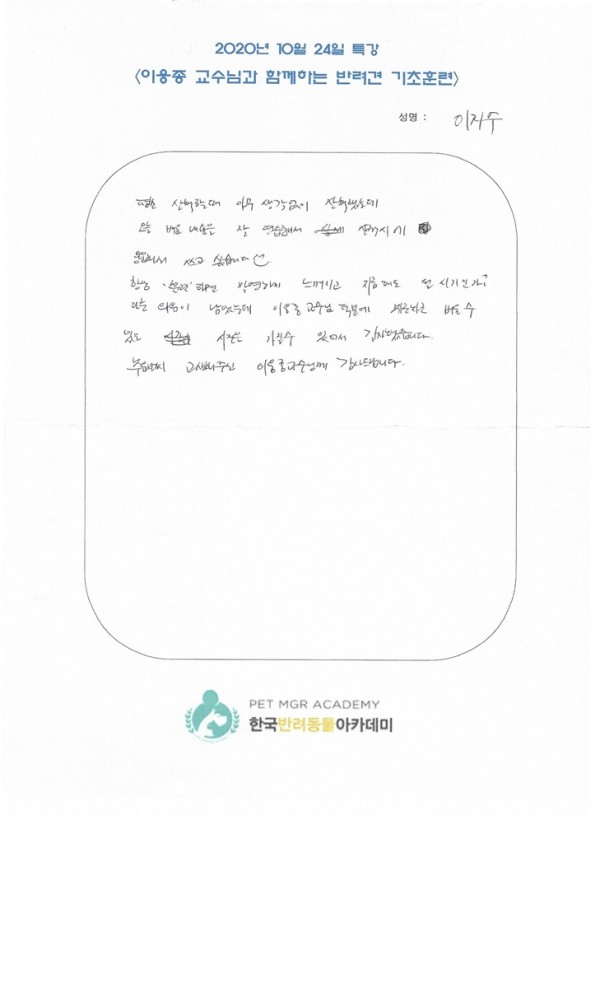 2020년 10월 24일 특강
<이웅종 교수님과 함께하는 반려견 기초훈련>
성명 : 이지수
평소 산책할때 아무 생각없이 산책했는데
오늘 배운 내용은 잘 연습해서 산책시 기
응용해서 쓰고 싶습니다
항상 '훈련'하면 막연하게 느껴지고 지금 해도 될 시기인가?
라는 의문이 남았는데 이웅종 교수님 덕분에 배울 수
있는 시간을 가질수 있어서 감사했습니다.
추운날씨 고생해주신 이웅종교수님께 감사드립니다.
PET MGR ACADEMY
한국반려동물아카데미